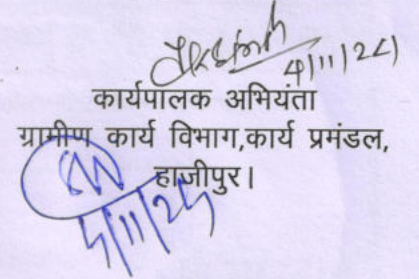 4/11/24
कार्यपालक अभियंता
ग्रामीण कार्य विभाग,कार्य प्रमंडल,
हाजीपुर।
5/11/24